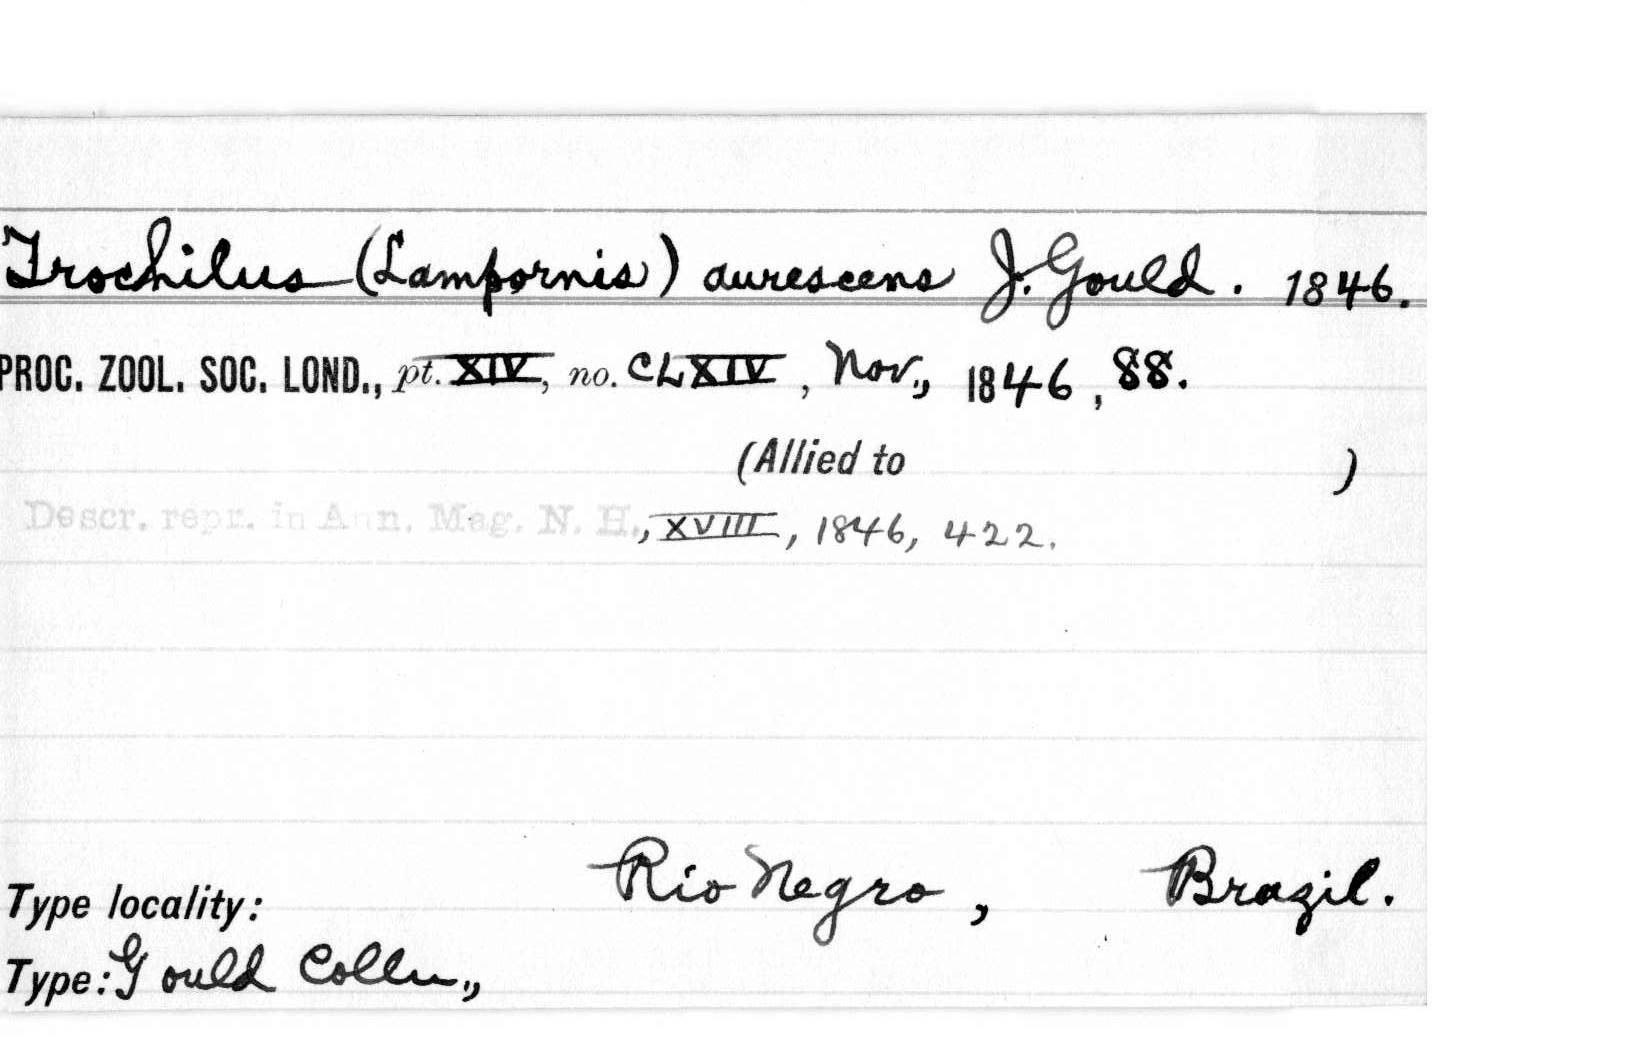 Trochilus (Lampornis) aurescens J. Gould. 1846.
PROC. ZOOL. SOC. LOND., pt. XIV, no. CLXIV, Nov., 1846, 88.
(Allied to )
Descr. repr. in Ann. Mag. N. H., XVIII, 1846, 422.
Rio Negro, Brazil.
Type locality:
Type: Gould Colln.,